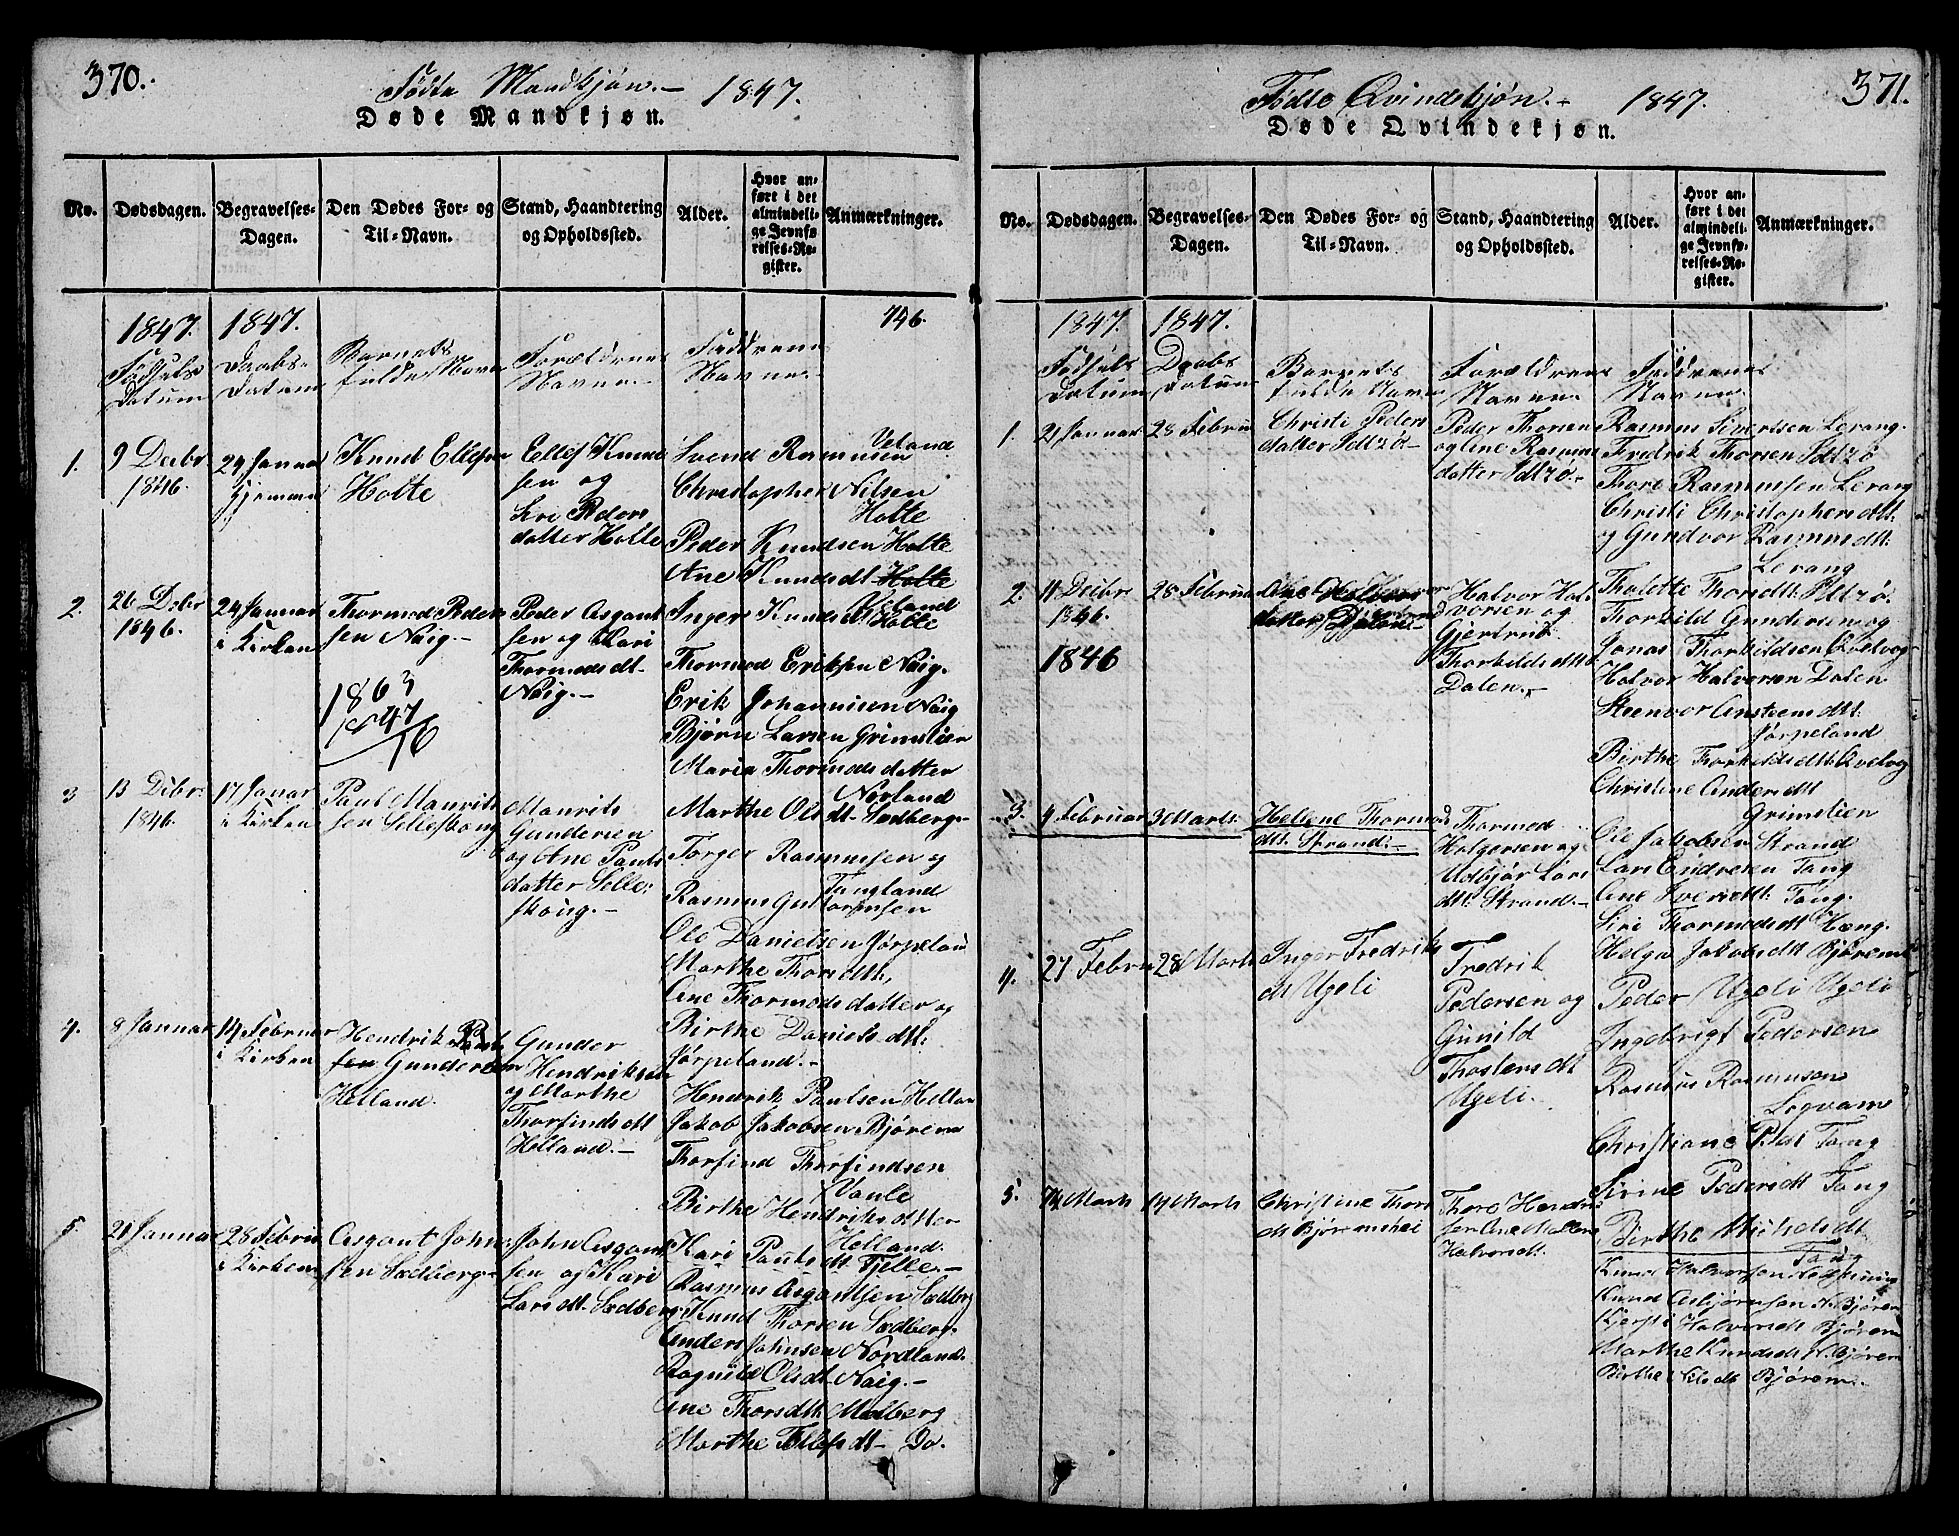 370.
Fødte Mandkjøn.- 1847.
Døde Mandkjøn.
No.
Dødsdagen.
Begravelses-
Dagen.
Den Dødes For- og
Til-Navn.
Stand, Haandtering
og Opholdssted.
Alder.
Hvor an-
ført i det
almindeli-
ge Jevnfø-
relses-Re-
gister.
Anmærkninger.
746.
1847. 1847.
Fødsels
Datum
Daabs-
Datum
Barnets
fulde Navn
Forældrenes
Navne.-
Faddrenes
Navne.-
1.
9 Decbr
1846.
24 Januar
hjemme
Knud Ellefsen
Holte
Ellef Knud
sen og
Siri Peders
datter Holte
Svend Rasmusen
Veland
Christopher Nilsen
Holte
Peder Knudsen Holte
Ane Knudsdt. Holte
Veland
Inger Knudsdt Holte
2.
26 Debr
1846.
24 Januar
i Kirken
Thormod Peder
sen Naig.-
1863
1847
16
Peder Asgaut
sen og Mari
Thormodsdt.
Naig.-
Thormod Eriksen Naig.
Erik Johannisen Naig
Bjørn Larsen Grimslien
Maria Thormods datter
Norland
Marthe Olsdt. Sædberg.-
3
13 Debr.
1846.
17 Januar
i Kirken
Paul Maurits
sen Selleskoug
Maurits
Gundersen
og Ane Pauls
datter Selle-
skoug.-
Torger Rasmusen og
Tungland
Rasmus Guttormsen
Ole Danielsen Jørpeland
Marthe Thorsdtt,
Ane Thormods datter og
Birthe Daniels dtt.
Jørpeland.-
4.
8 Januar
14 Februar
i Kirken
Hendrik Pauls
sen Gundersen
Helland.
Gunder
Hendriksen
og Marthe
Thorfinds dt
Helland.-
Hendrik Paulsen Hellan
Jakob Jakobsen Bjørem
Thorfind Thorfindsen
Vaule
Birthe Hendriks dtter
Helland.
5.
21 Januar
28 Februar
i Kirken
Asgaut John-
sen Sædberg-
John Asgaut
sen og Kari
Larsdt. Sædberg
Kari Paulsdt Tjelle.-
Rasmus Asgautsen Sædberg
Knud Thorsen Sædberg.
Anders Johnsen Nordland.
Ragnild Olsdt. Naig.-
Ane Thorsdt. Mælberg
Marthe Tollefsdt- Do.
371.
Fødte Qvindekjøn.- 1847.
Døde Qvindekjøn.
No.
Dødsdagen.
Begravelses-
Dagen.
Den Dødes For- og
Til-Navn.
Stand, Haandtering
og Opholdssted.
Alder.
Hvor an-
ført i det
almindeli-
ge Jevnfø-
relses-Re-
gister.
Anmærkninger.
1847. 1847.
Fødsels
Datum
Daabs
Datum
Barnets
fulde Navn
Forældrenes
Navne.
Faddrenes
Navne.
1.
21 Januar
28 Februar
Christi Peders
datter Idtzø-
Peder Thorsen
og Ane Rasmus
datter Idtzø.-
Rasmus Sivertsen Lerang.
Fredrik Thorsen Idtzø
Thore Rasmusen Lerang
Christi Christophersdt.
og Gundvor Rasmusdt.
Lerang
Tholette Thorsdt. Idtzø.
2.
11 Decbr
1846.
1846
28 Februar
Ane Halvors
datter Dalen.-
Halvor Hal
vorsen og
Gjertrud
Thorkildsdtt
Dalen.-
Thorkild Gundersen og
Jonas Thorkildsen Qvelvog
Halvor Halvorsen Dalen
Steenvor Ansteensdt.
Jørpeland
Birthe Thorkildsdtt. Qvelvog
Christine Andersdt
Grimslien
3.
4 Februar
3 Marts
Heliene Thormod
dt. Strand.-
Thormod
Holgersen og
Udbjør Lars
dt. Strand.-
Ole Jakobsen Strand
Lars Endresen Tang
Ane Iversdt. Tang.
Siri Thormodsdt Hæng.
Helga Jakobsdt Bjørem
4.
27 Febru
28 Marts
Inger Fredriks
dt Ugeli
Fredrik
Pedersen og
Gunild
Thostensdt
Ugeli.
Peder Ugeli Ugeli
Ingebrigt Pedersen
Rasmus Rasmuson
Christiane Pdt Tang
Sirine Pedersdt Tang
Birthe Mikelsdt
Tang
5.
14 Marts
Christine Thors
dt Bjøremshei
Thore Hendrik
sen Ane Malene
Halvorsdt.
Knud Halvorsen
Knud Asbjørnsen N. Bjørem
Kjersti Halvorsdt Bjørem
Marthe Knudsdt N. Bjørem
Birthe Nilsdt Bjørem.-